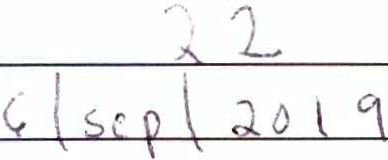 22
6/sep/2019